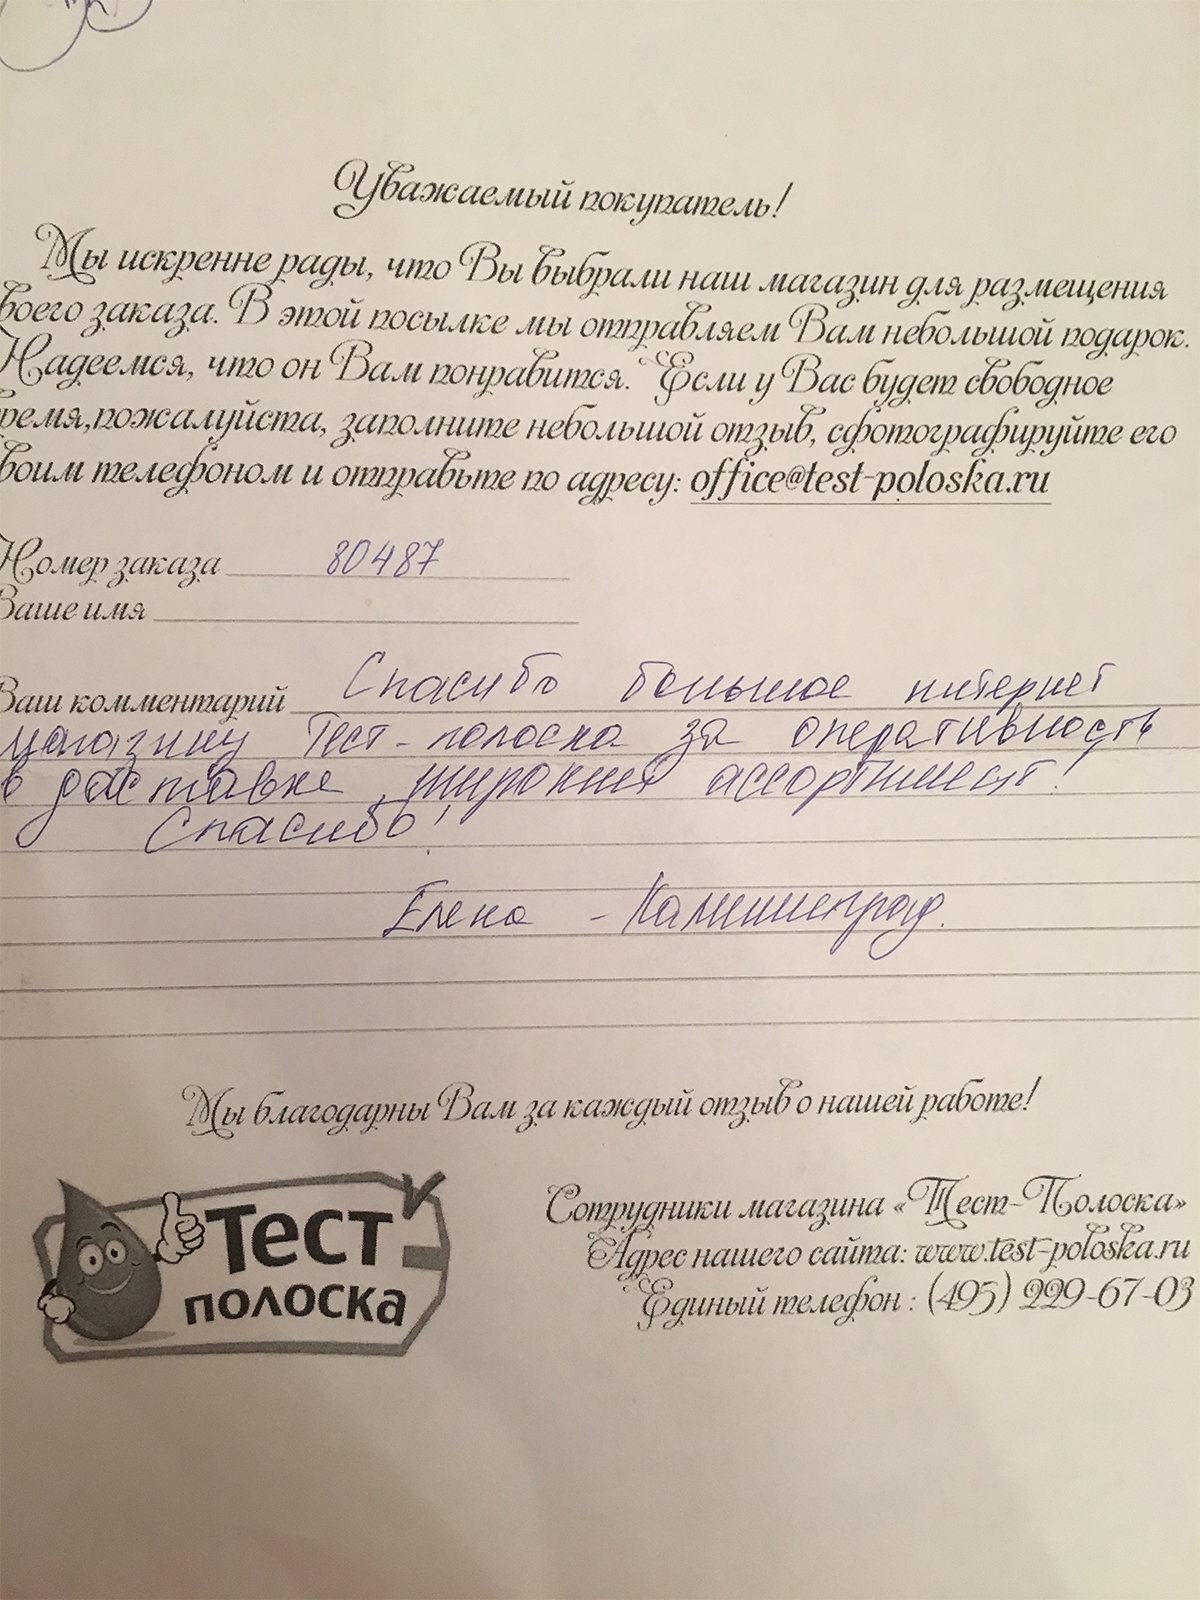 Уважаемый покупатель!
Мы искренне рады, что Вы выбрали наш магазин для размещения
воего заказа. В этой посылке мы отправляем Вам небольшой подарок.
Надеемся, что он Вам понравится. Если у Вас будет свободное
ремя, пожалуйста, заполните небольшой отзыв, сфотографируйте его
воим телефоном и отправьте по адресу: office@test-poloska.ru
Номер заказа 80487
Ваше имя
Ваш комментарий Спасибо большое интернет
магазину Тест-полоска за оперативность
в доставке, широкий ассортимент!
Спасибо!
Елена - Калининград.
Мы благодарны Вам за каждый отзыв о нашей работе!
Тест
полоска
Сотрудники магазина «Тест-Полоска»
Адрес нашего сайта: www.test-poloska.ru
Единый телефон: (495) 229-67-03